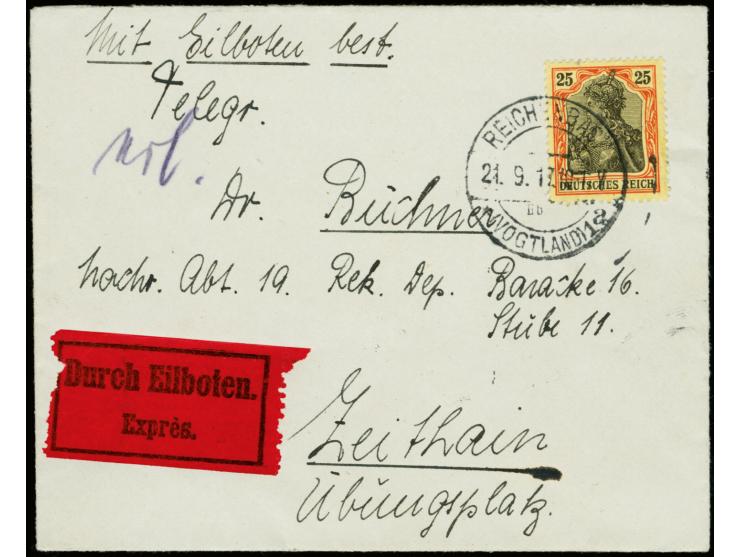 Mit Eilboten best.
25 25
DEUTSCHES REICH
Telegr.
REICHENBA
21. 9. 17. V
Db
(VOGTLAND) 1a
Dr. Büchner
Nachr. Abt. 19. Rek. Dep. Baracke 16.
Stube 11.
Durch Eilboten.
Exprès.
Zeithain
Übungsplatz.